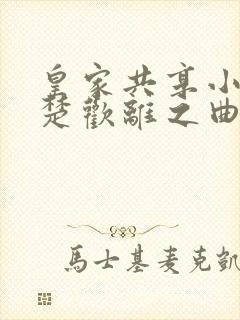 皇家共享小
楚歡離之曲
馬士基麥克凱